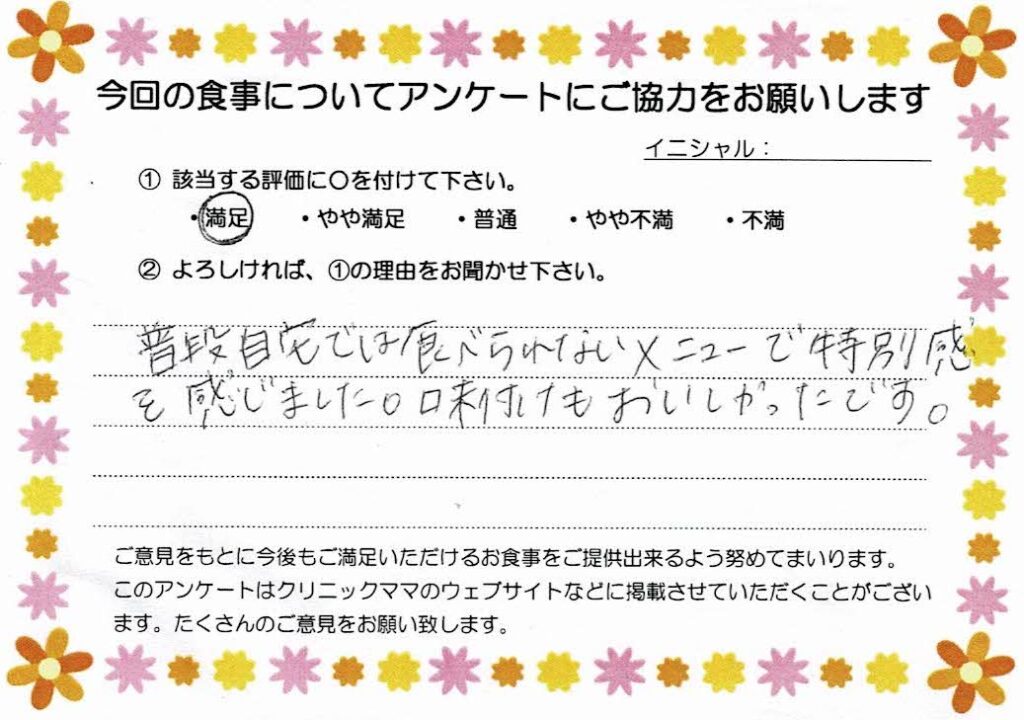 今回の食事についてアンケートにご協力をお願いします
イニシャル：
① 該当する評価に〇を付けて下さい。
・満足 ・やや満足 ・普通 ・やや不満 ・不満
② よろしければ、①の理由をお聞かせ下さい。
普段自宅では食べられないメニューで特別感
を感じました。味付けもおいしかったです。
ご意見をもとに今後もご満足いただけるお食事をご提供出来るよう努めてまいります。
このアンケートはクリニックママのウェブサイトなどに掲載させていただくことがござい
ます。たくさんのご意見をお願い致します。